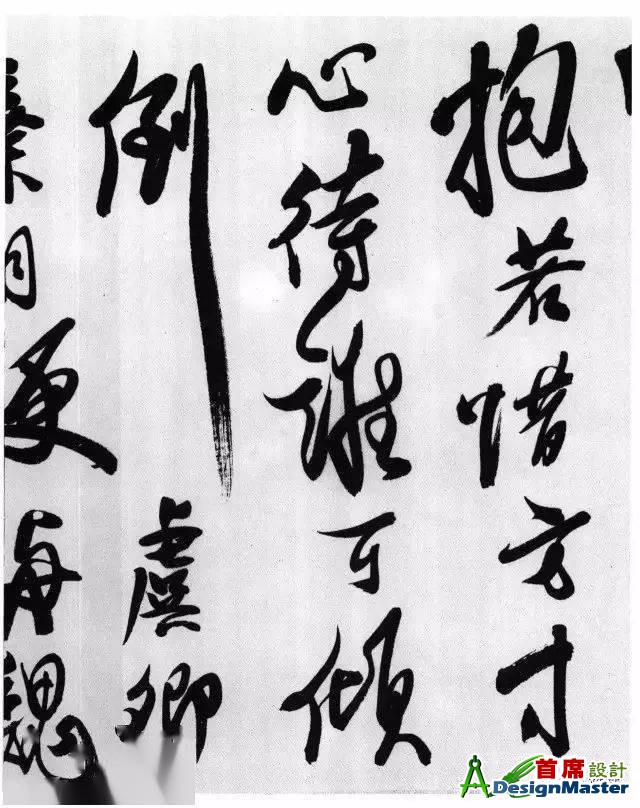 抱若惜方寸
心待誰可傾
倒虞卿
魏
首席設計
ADesignMaster